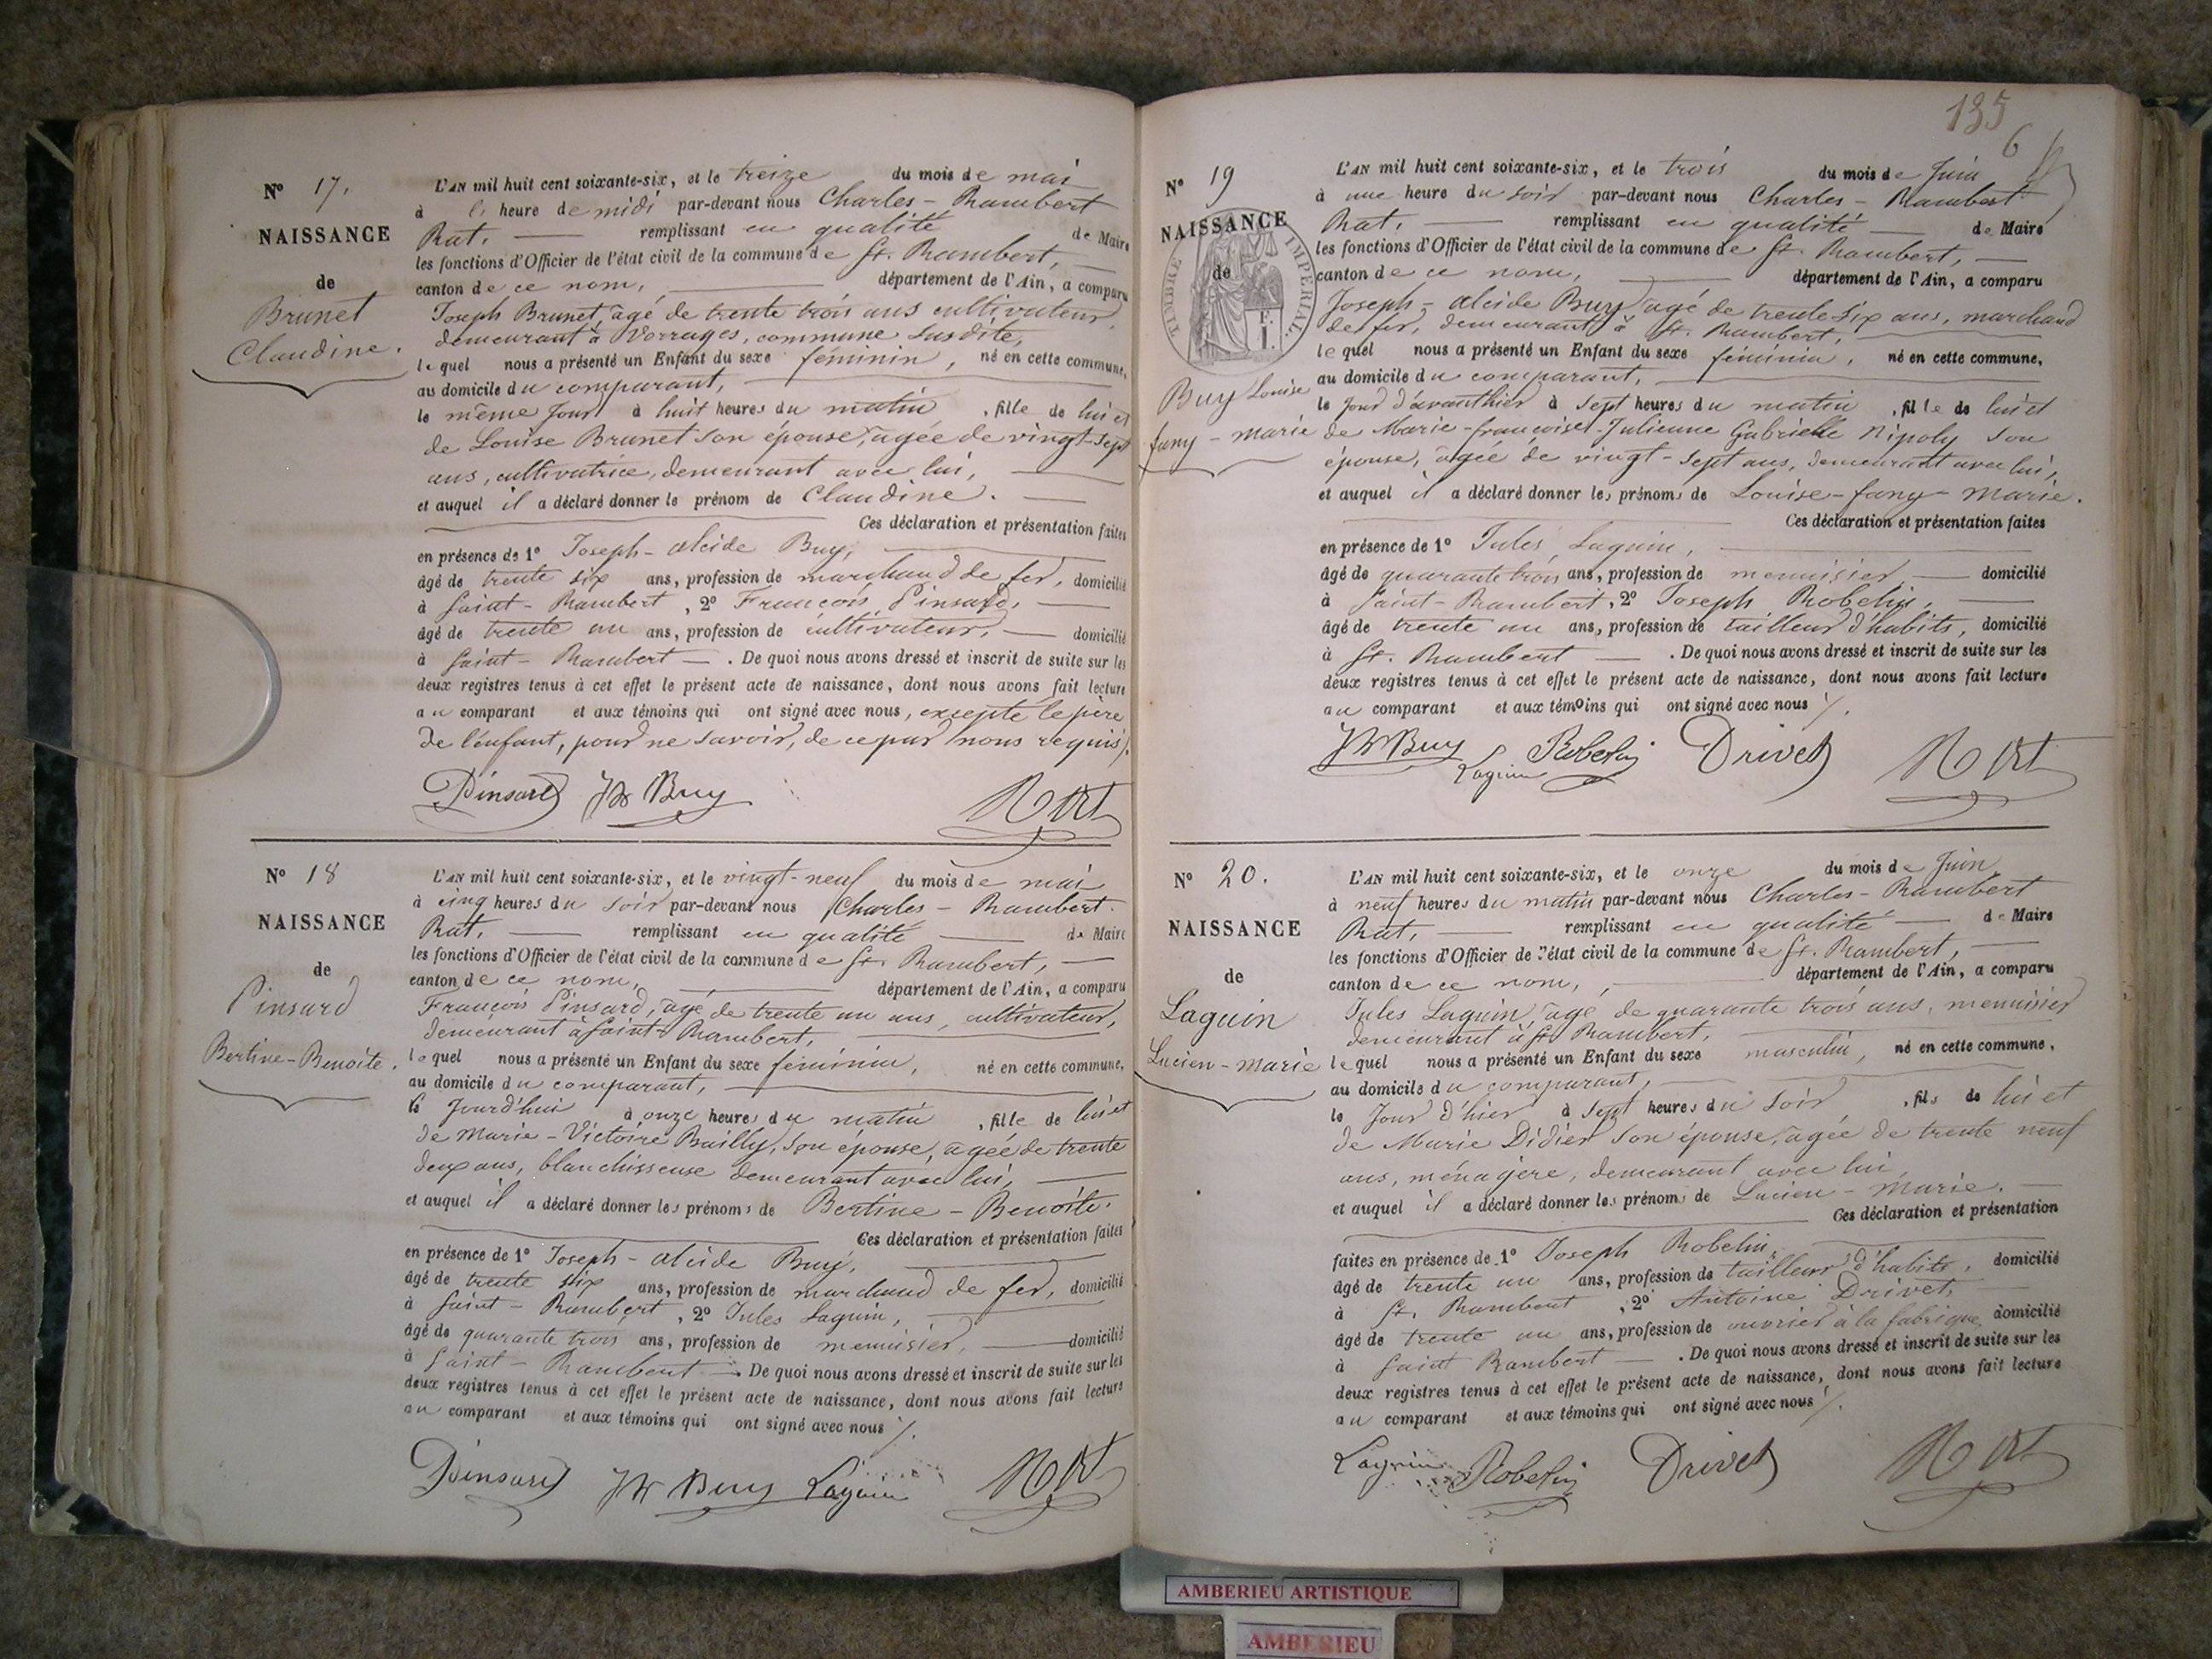 N° 17.
NAISSANCE
de
Brunet
Claudine.
L'AN mil huit cent soixante-six, et le treize du mois de mai
à heure de midi par-devant nous Charles - Rambert
Rat, remplissant en qualité de Maire
les fonctions d'Officier de l'état civil de la commune de St. Rambert,
canton de ce nom, département de l'Ain, a comparu
Joseph Brunet, âgé de trente trois ans cultivateur,
demeurant à Vorrages, commune susdite,
lequel nous a présenté un Enfant du sexe féminin, né en cette commune,
au domicile du comparant,
le même jour à huit heures du matin, fille de lui et
de Louise Brunet son épouse, agée de vingt-sept
ans, cultivatrice, demeurant avec lui,
et auquel il a déclaré donner le prénom de Claudine.
Ces déclaration et présentation faites
en présence de 1° Joseph - alcide Buy,
âgé de trente six ans, profession de marchand de fer, domicilié
à Saint - Rambert, 2° François Pinsard,
âgé de trente un ans, profession de cultivateur, domicilié
à Saint - Rambert. De quoi nous avons dressé et inscrit de suite sur les
deux registres tenus à cet effet le présent acte de naissance, dont nous avons fait lecture
au comparant et aux témoins qui ont signé avec nous, excepté le père
de l'enfant, pour ne savoir, de ce par nous requis /.
Pinsard Buy Rat
N° 18
NAISSANCE
de
Pinsard
Bertine-Benoite.
L'AN mil huit cent soixante-six, et le vingt-neuf du mois de mai
à cinq heures du soir par-devant nous Charles - Rambert
Rat, remplissant en qualité de Maire
les fonctions d'Officier de l'état civil de la commune de St. Rambert,
canton de ce nom, département de l'Ain, a comparu
François Pinsard, âgé de trente un ans, cultivateur,
demeurant à Saint-Rambert,
lequel nous a présenté un Enfant du sexe féminin, né en cette commune,
au domicile du comparant,
le jourd'hui à onze heures du matin, fille de lui et
de Marie - Victoire Bailly, son épouse, agée de trente
deux ans, blanchisseuse demeurant avec lui,
et auquel il a déclaré donner les prénoms de Bertine - Benoite.
Ces déclaration et présentation faites
en présence de 1° Joseph - alcide Buy,
âgé de trente six ans, profession de marchand de fer, domicilié
à Saint - Rambert, 2° Jules Laguin,
âgé de quarante trois ans, profession de menuisier, domicilié
à Saint - Rambert. De quoi nous avons dressé et inscrit de suite sur les
deux registres tenus à cet effet le présent acte de naissance, dont nous avons fait lecture
au comparant et aux témoins qui ont signé avec nous /.
Pinsard Buy Laguin Rat
135
6
N° 19
NAISSANCE
de
TIMBRE IMPÉRIAL
F.
1.
Buy Louise
fany - marie
L'AN mil huit cent soixante-six, et le trois du mois de Juin
à une heure du soir par-devant nous Charles - Rambert
Rat, remplissant en qualité de Maire
les fonctions d'Officier de l'état civil de la commune de St. Rambert,
canton de ce nom, département de l'Ain, a comparu
Joseph - alcide Buy âgé de trente six ans, marchand
de fer, demeurant à St. Rambert,
lequel nous a présenté un Enfant du sexe féminin, né en cette commune,
au domicile du comparant,
le jour d'avanthier à sept heures du matin, fille de lui et
de Marie - françoise - Julienne Gabrielle Nipoly son
épouse, agée de vingt-sept ans, demeurant avec lui,
et auquel il a déclaré donner les prénoms de Louise - fany - marie.
Ces déclaration et présentation faites
en présence de 1° Jules Laguin,
âgé de quarante trois ans, profession de menuisier domicilié
à Saint-Rambert, 2° Joseph Robelin,
âgé de trente un ans, profession de tailleur d'habits, domicilié
à St. Rambert. De quoi nous avons dressé et inscrit de suite sur les
deux registres tenus à cet effet le présent acte de naissance, dont nous avons fait lecture
au comparant et aux témoins qui ont signé avec nous /.
Buy Laguin Robelin Drivet Rat
N° 20.
NAISSANCE
de
Laguin
Lucien - marie
L'AN mil huit cent soixante-six, et le onze du mois de Juin
à neuf heures du matin par-devant nous Charles - Rambert
Rat, remplissant en qualité de Maire
les fonctions d'Officier de l'état civil de la commune de St. Rambert,
canton de ce nom, département de l'Ain, a comparu
Jules Laguin, âgé de quarante trois ans, menuisier
demeurant à St. Rambert,
lequel nous a présenté un Enfant du sexe masculin, né en cette commune,
au domicile du comparant,
le jour d'hier à sept heures du soir, fils de lui et
de Marie Didier son épouse, agée de trente neuf
ans, ménagère, demeurant avec lui,
et auquel il a déclaré donner les prénoms de Lucien - Marie.
Ces déclaration et présentation
faites en présence de 1° Joseph Robelin,
âgé de trente un ans, profession de tailleur d'habits, domicilié
à St. Rambert, 2° Antoine Drivet,
âgé de trente un ans, profession de ouvrier à la fabrique, domicilié
à Saint Rambert. De quoi nous avons dressé et inscrit de suite sur les
deux registres tenus à cet effet le présent acte de naissance, dont nous avons fait lecture
au comparant et aux témoins qui ont signé avec nous /.
Laguin Robelin Drivet Rat
AMBERIEU ARTISTIQUE
AMBERIEU